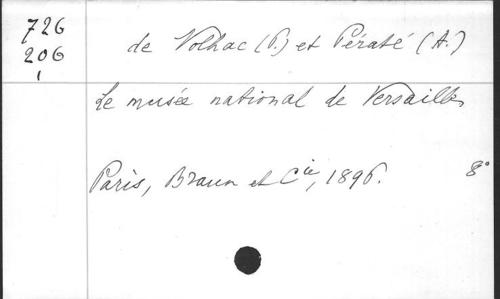 726
206
1
de Nolhac (P.) et Pératé (A.)
Le musée national de Versailles
Paris, Braun et Cie, 1896. 8°